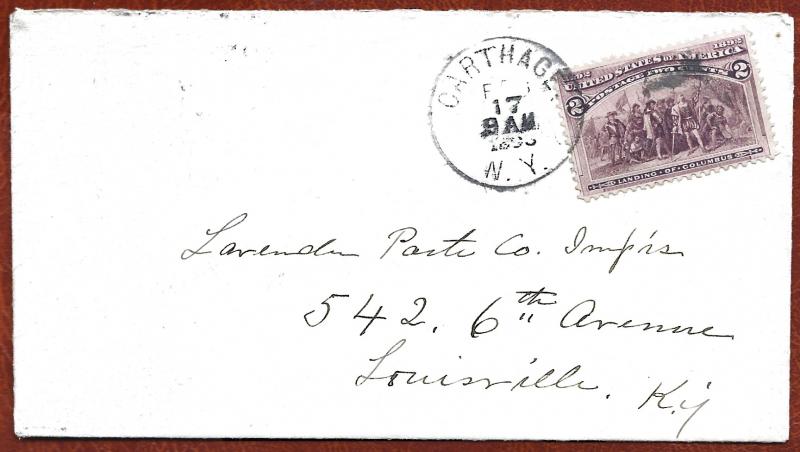 CARTHAGE.
FEB
17
9 AM
N. Y.
1492 1892
UNITED STATES OF AMERICA
POSTAGE TWO CENTS
2 2
LANDING · OF · COLUMBUS
Lavender Paste Co. Imp'rs
542. 6th Avenue
Louisville. Ky